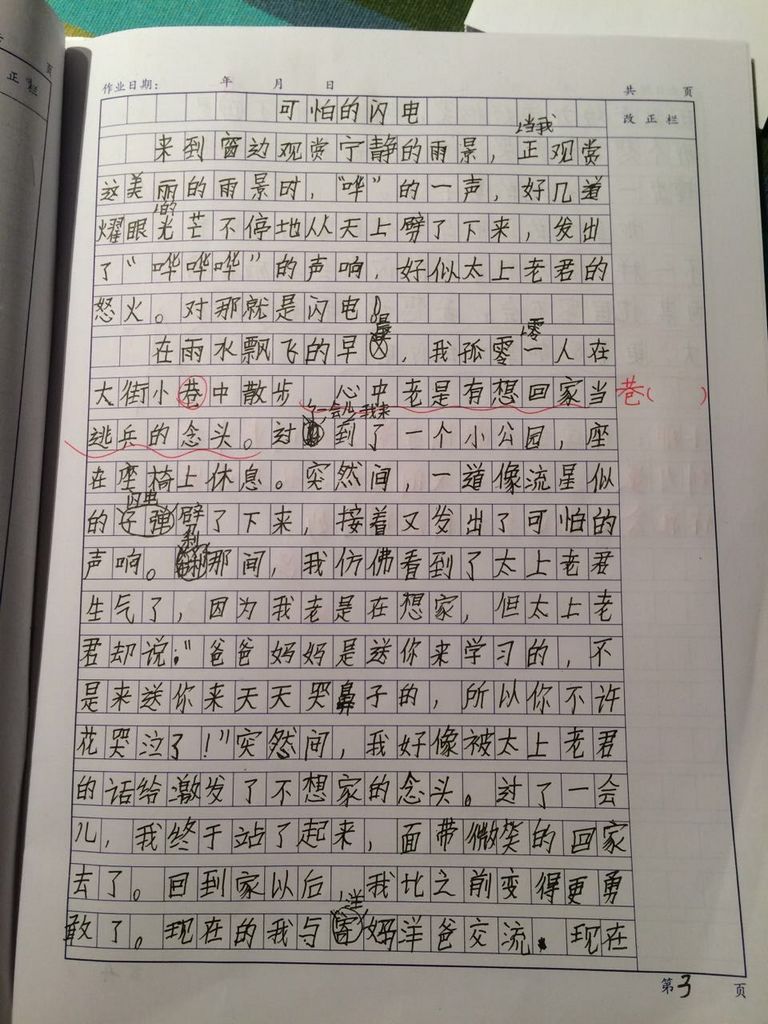 作业日期: 年 月 日 共 页
改正栏
可怕的闪电
当我
来到窗边观赏宁静的雨景，正观赏
这美丽的雨景时，“哗”的一声，好几道
的
耀眼光芒不停地从天上劈了下来，发出
了“哗哗哗”的声响，好似太上老君的
怒火。对那就是闪电！
晨 零
在雨水飘飞的早，我孤零一人在
大街小巷中散步 心中老是有想回家当 巷( )
了一会儿我来
逃兵的念头。过到了一个小公园，座
在座椅上休息。突然间，一道像流星似
闪电
的子弹劈了下来，接着又发出了可怕的
刹
声响。那间，我仿佛看到了太上老君
生气了，因为我老是在想家，但太上老
君却说：“爸爸妈妈是送你来学习的，不
是来送你来天天哭鼻子的，所以你不许
花哭泣了！”突然间，我好像被太上老君
的话给激发了不想家的念头。过了一会
儿，我终于站了起来，面带微笑的回家
去了。回到家以后，我比之前变得更勇
洋
敢了。现在的我与妈洋爸交流．现在
第3页